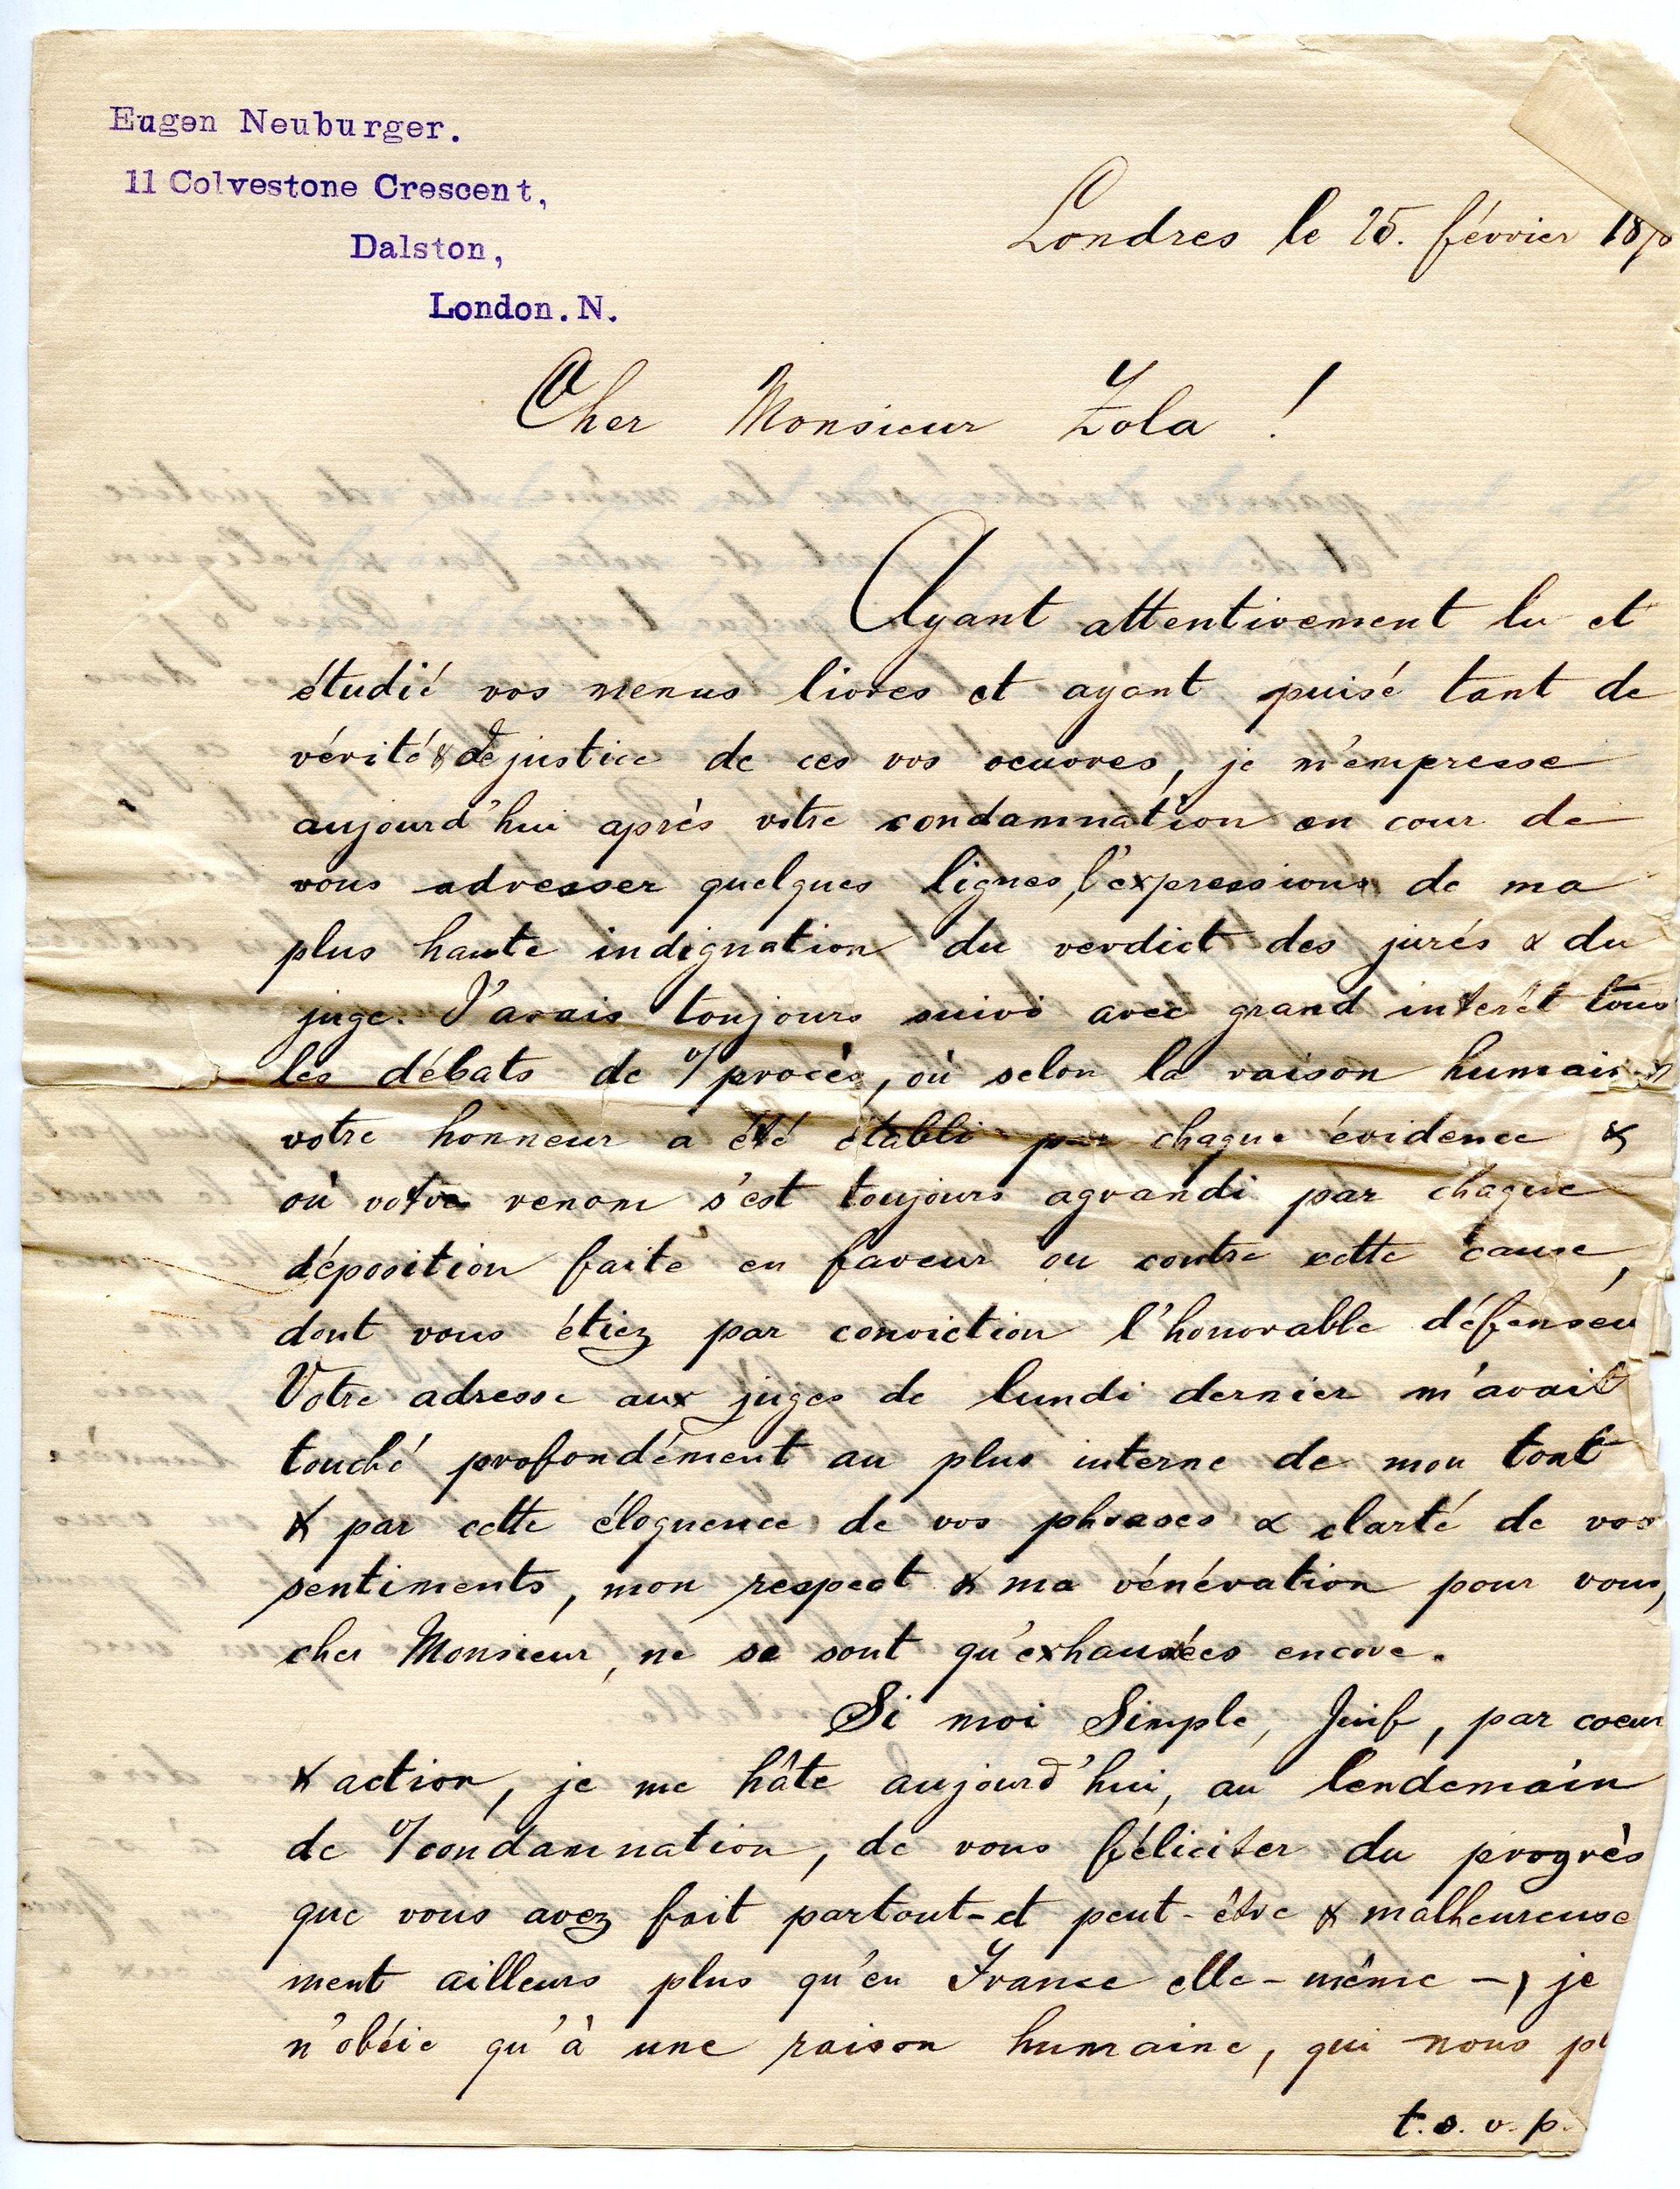 Eugen Neuburger.
11 Colvestone Crescent,
Dalston,
London. N.
Londres le 25. février 18
Cher Monsieur Zola !
Ayant attentivement lu et
étudié vos menus livres et ayant puisé tant de
vérité & de justice de ces vos oeuvres, je m'empresse
aujourd'hui après votre condamnation en cour de
vous adresser quelques lignes, l'expression de ma
plus haute indignation du verdict des jurés & du
juge. J'avais toujours suivi avec grand interêt tous
les débats de v/procès, où selon la raison humain
votre honneur a été établi par chaque évidence &
où votre renom s'est toujours agrandi par chaque
déposition faite en faveur ou contre cette cause,
dont vous étiez par conviction l'honorable défenseu
Votre adresse aux juges de lundi dernier m'avait
touché profondément au plus interne de mon tout
& par cette éloquence de vos phrases & clarté de vos
sentiments, mon respect & ma vénération pour vous,
cher Monsieur, ne se sont qu'exhaussées encore.
Si moi Simple, Juif, par coeur
& action, je me hâte aujourd'hui, au lendemain
de v/condamnation, de vous féliciter du progrès
que vous avez fait partout - et peut-être & malheureuse
ment ailleurs plus qu'en France elle-même -, je
n'obéie qu'à une raison humaine, qui nous p
t.s.v.p.